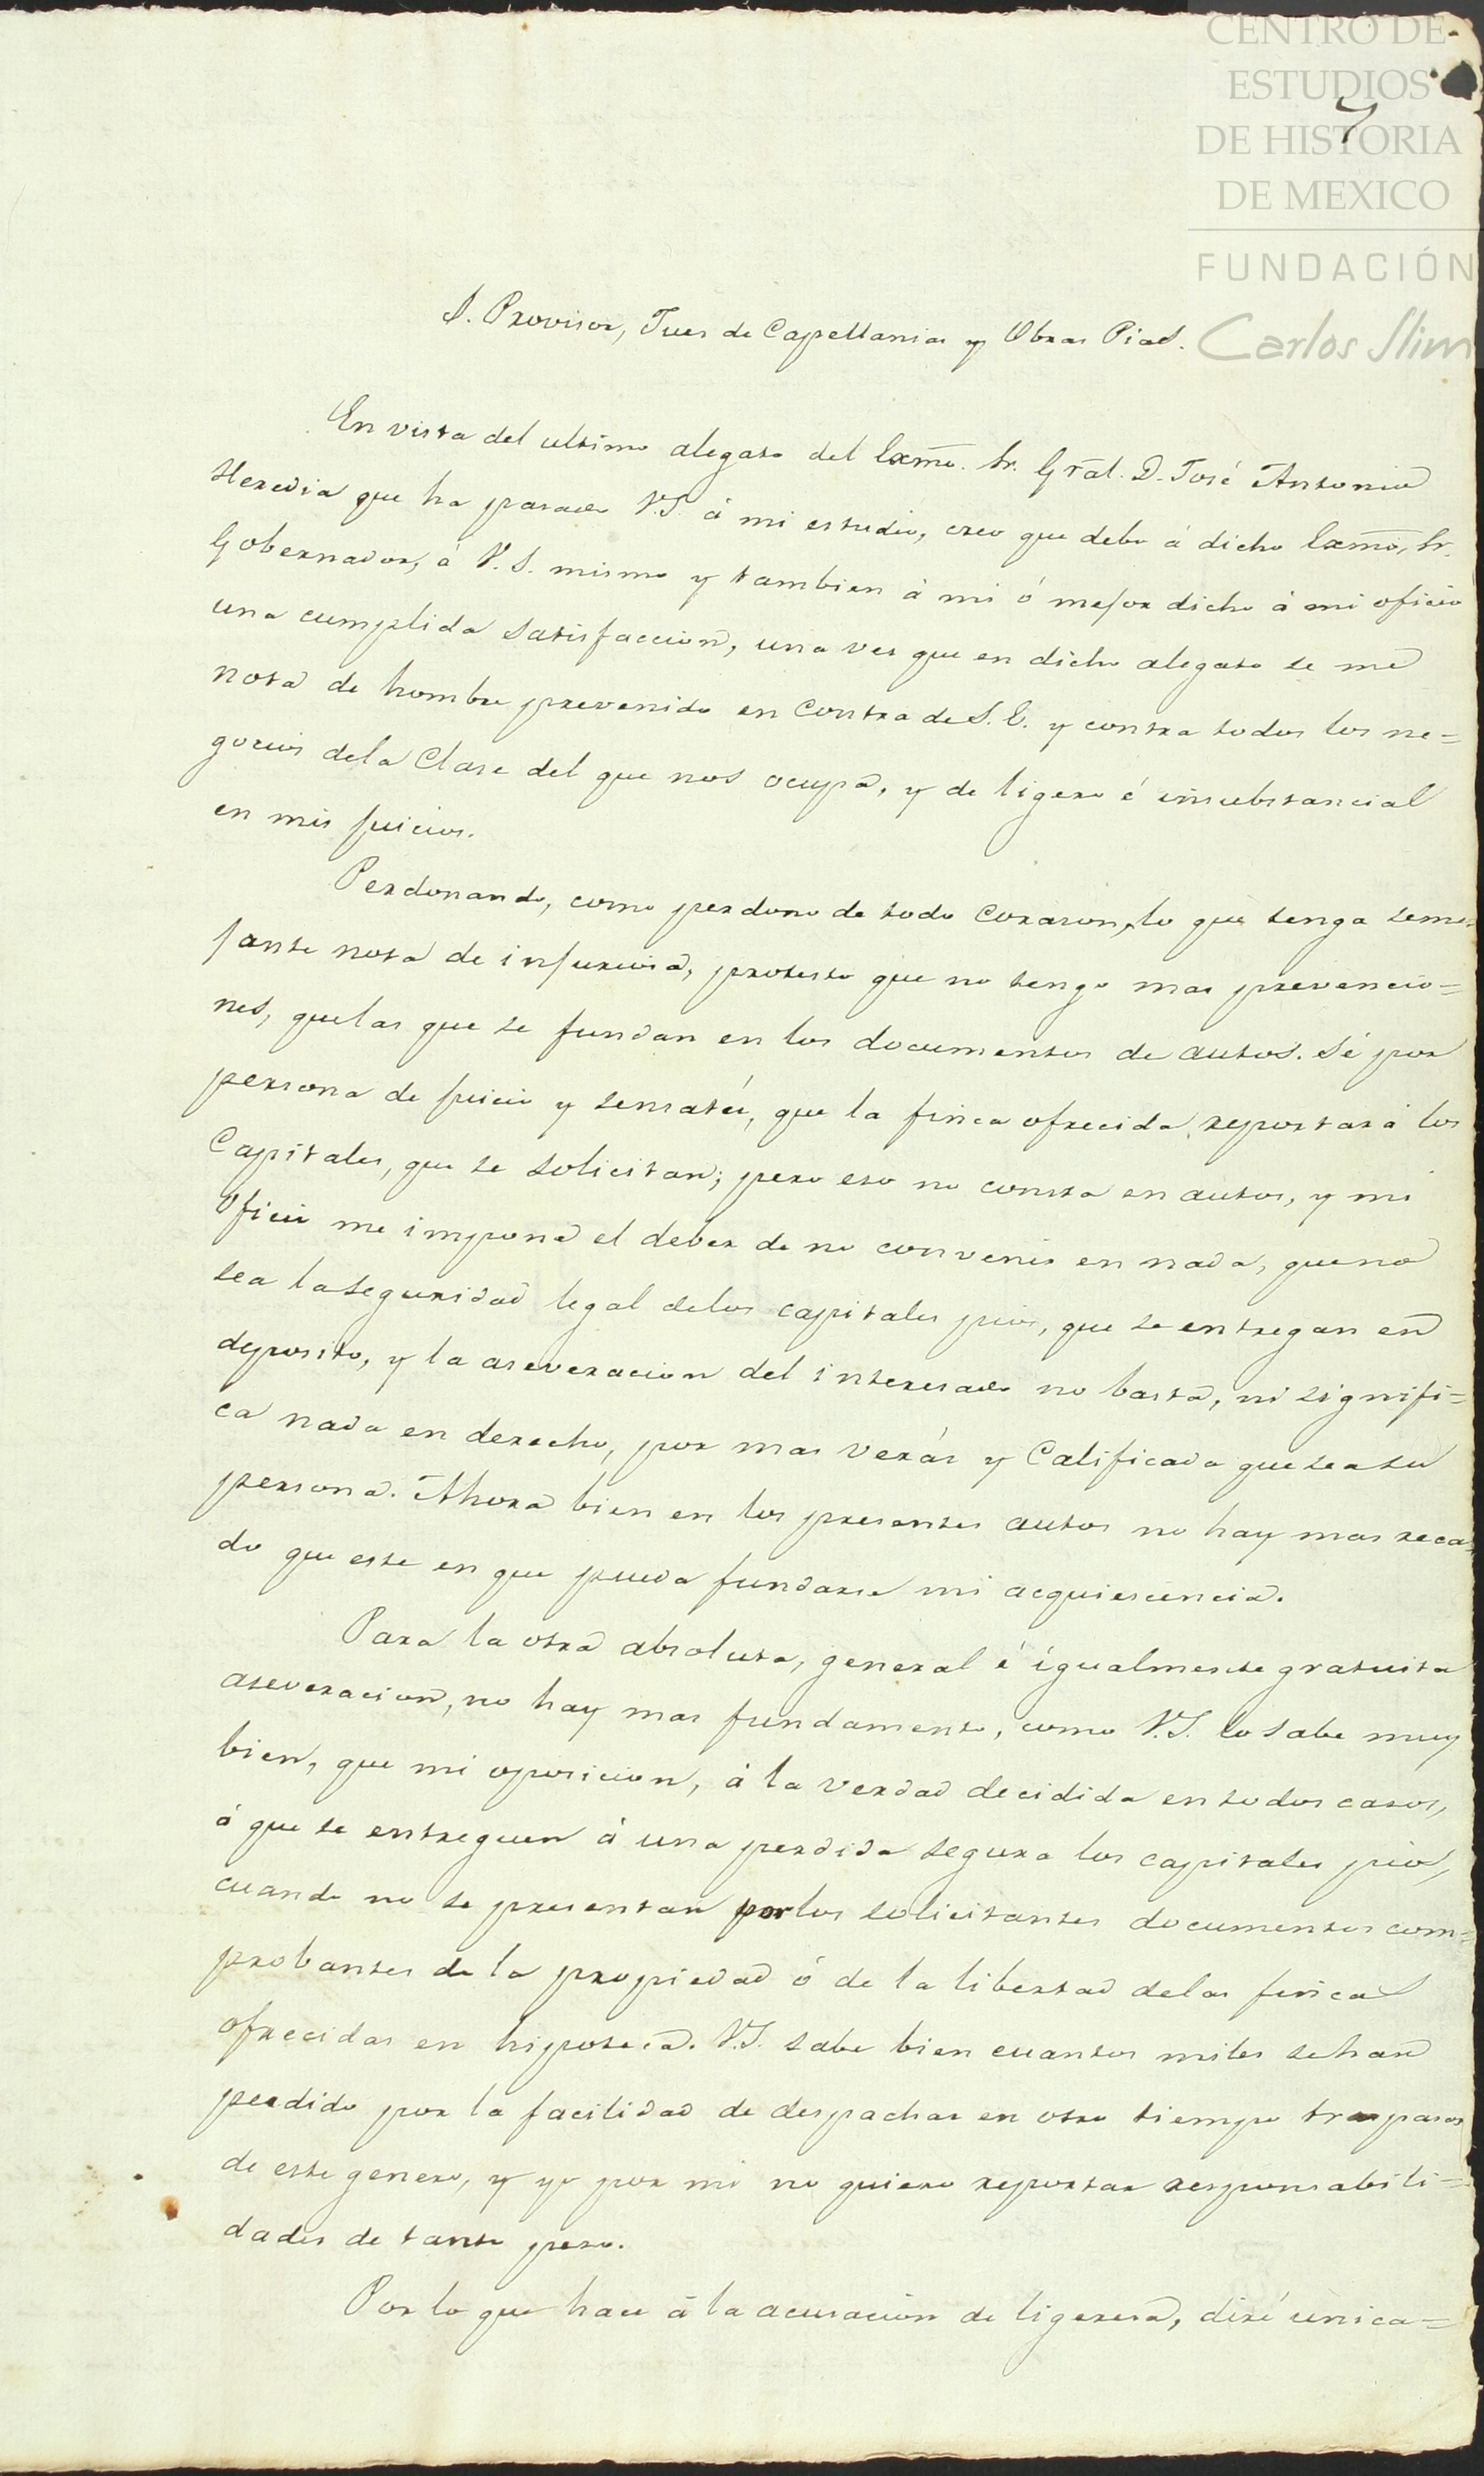 CENTRO DE
ESTUDIOS
DE HISTORIA
DE MEXICO
FUNDACIÓN
Carlos Slim
S. Provisor, Jues de Capellanias y Obras Pias.
En vista del ultimo alegato del Exmo. Sr. Gral. D. José Antonio
Heredia que ha pasado V.S. á mi estudio, creo que debo á dicho Exmo, Sr.
Gobernador, á V.S. mismo y tambien á mi ó mejor dicho á mi oficio
una cumplida satisfaccion, una ves que en dicho alegato se me
nota de hombre prevenido en Contra de S.E. y contra todos los ne=
gocios dela Clase del que nos ocupa, y de ligero é insubstancial
en mis juicios.
Perdonando, como perdono de todo Corazon, lo que tenga seme=
jante nota de injuriosa, protesto que no tengo mas prevencio=
nes, quelas que se fundan en los documentos de autos. Sé por
persona de juicio y sensatéz, que la finca ofrecida, reportará los
Capitales, que se solicitan; pero eso no consta en autos, y mi
Oficio me impone el deber de no convenir en nada, queno
sea laseguridad legal delos capitales pios, que se entregan en
deposito, y la aseveracion del interesado no basta, ni signifi=
ca nada en derecho, por mas veráz y Calificada que sea su
persona. Ahora bien en los presentes autos no hay mas reca=
do que este en que pueda fundarse mi acquiescencia.
Para la otra absoluta, general é igualmente gratuita
aseveracion, no hay mas fundamento, como V.S. lo sabe muy
bien, que mi oposicion, á la verdad decidida en todos casos,
á que se entreguen á una perdida segura los capitales pios,
cuando no se presentan por los solicitantes documentos com=
probantes de la propiedad ó de la libertad delas fincas
ofrecidas en hipoteca. V.S. sabe bien cuantos miles sehan
perdido por la facilidad de despachar en otro tiempo traspasos
de este genero, y yo por mi no quiero reportar responsabili=
dades de tanto peso.
Por lo que hace á la acusacion de ligereza, diré unica=